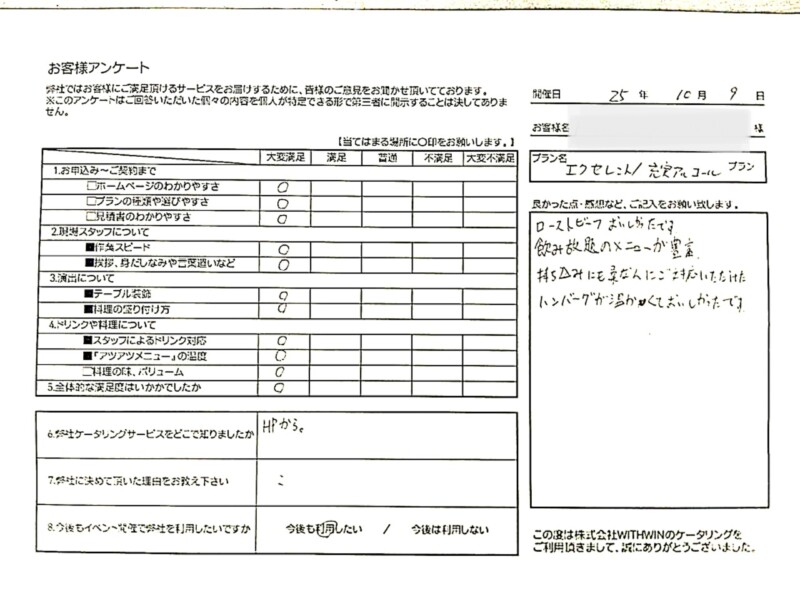 お客様アンケート
弊社ではお客様にご満足頂けるサービスをお届けするために、皆様のご意見をお聞かせ頂いております。
※このアンケートはご回答いただいた個々の内容を個人が特定できる形で第三者に開示することは決してありま
せん。
開催日 25 年 10 月 9 日
お客様名 様
【当てはまる場所に〇印をお願いします。】
プラン名 エクセレント/充実アルコール プラン
大変満足 満足 普通 不満足 大変不満足
1.お申込み～ご契約まで
□ホームページのわかりやすさ ○
□プランの種類や選びやすさ ○
□見積書のわかりやすさ ○
2.現場スタッフについて
■作業スピード ○
■挨拶、身だしなみや言葉遣いなど ○
3.演出について
■テーブル装飾 ○
■料理の盛り付け方 ○
4.ドリンクや料理について
■スタッフによるドリンク対応 ○
■「アツアツメニュー」の温度 ○
□料理の味、ボリューム ○
5.全体的な満足度はいかがでしたか ○
6.弊社ケータリングサービスをどこで知りましたか HPから。
7.弊社に決めて頂いた理由をお教え下さい
8.今後もイベント開催で弊社を利用したいですか 今後も利用したい / 今後は利用しない
良かった点・感想など、ご記入をお願い致します。
ローストビーフおいしかったです
飲み放題のメニューが豊富
持ち込みにも柔なんにご対応いただけた
ハンバーグが温かくておいしかったです
この度は株式会社WITHWINのケータリングを
ご利用頂きまして、誠にありがとうございました。